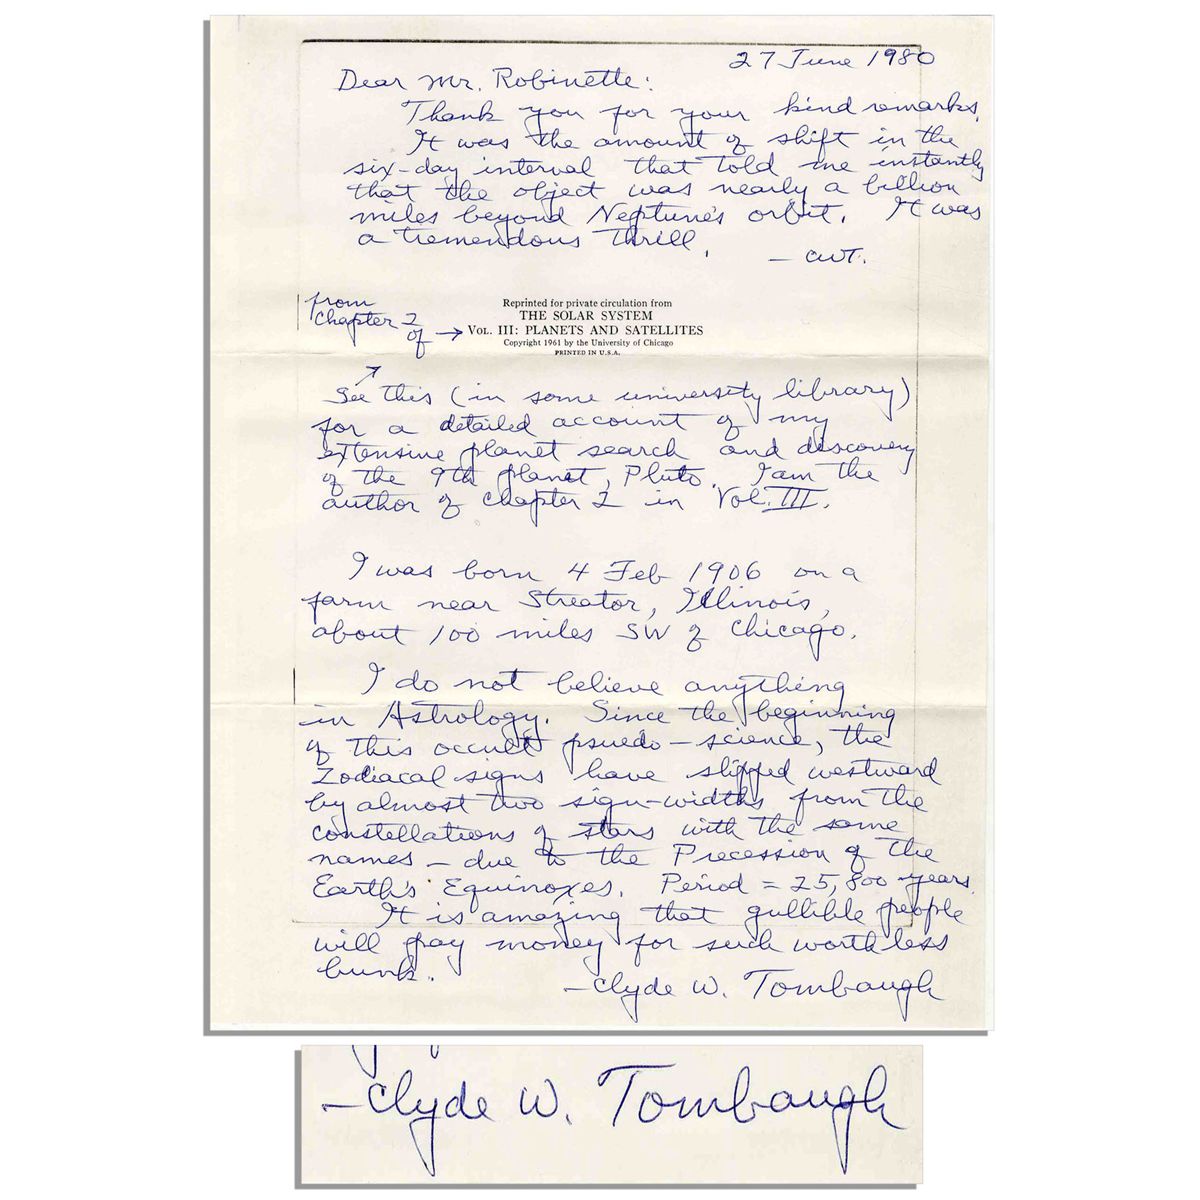 27 June 1980
Dear Mr. Robinette:
Thank you for your kind remarks.
It was the amount of shift in the
six-day interval that told me instantly
that the object was nearly a billion
miles beyond Neptune's orbit. It was
a tremendous thrill. — CWT.
from
Chapter 2
of →
Reprinted for private circulation from
THE SOLAR SYSTEM
VOL. III: PLANETS AND SATELLITES
Copyright 1961 by the University of Chicago
PRINTED IN U.S.A.
See this (in some university library)
for a detailed account of my
extensive planet search and discovery
of the 9th planet, Pluto. I am the
author of Chapter 2 in Vol. III.
I was born 4 Feb 1906 on a
farm near Streator, Illinois,
about 100 miles SW of Chicago.
I do not believe anything
in Astrology. Since the beginning
of this occult psuedo-science, the
Zodiacal signs have slipped westward
by almost two sign-widths from the
constellations of stars with the same
names — due to the Precession of the
Earth's Equinoxes. Period = 25,800 years.
It is amazing that gullible people
will pay money for such worthless
bunk.
— Clyde W. Tombaugh
— Clyde W. Tombaugh